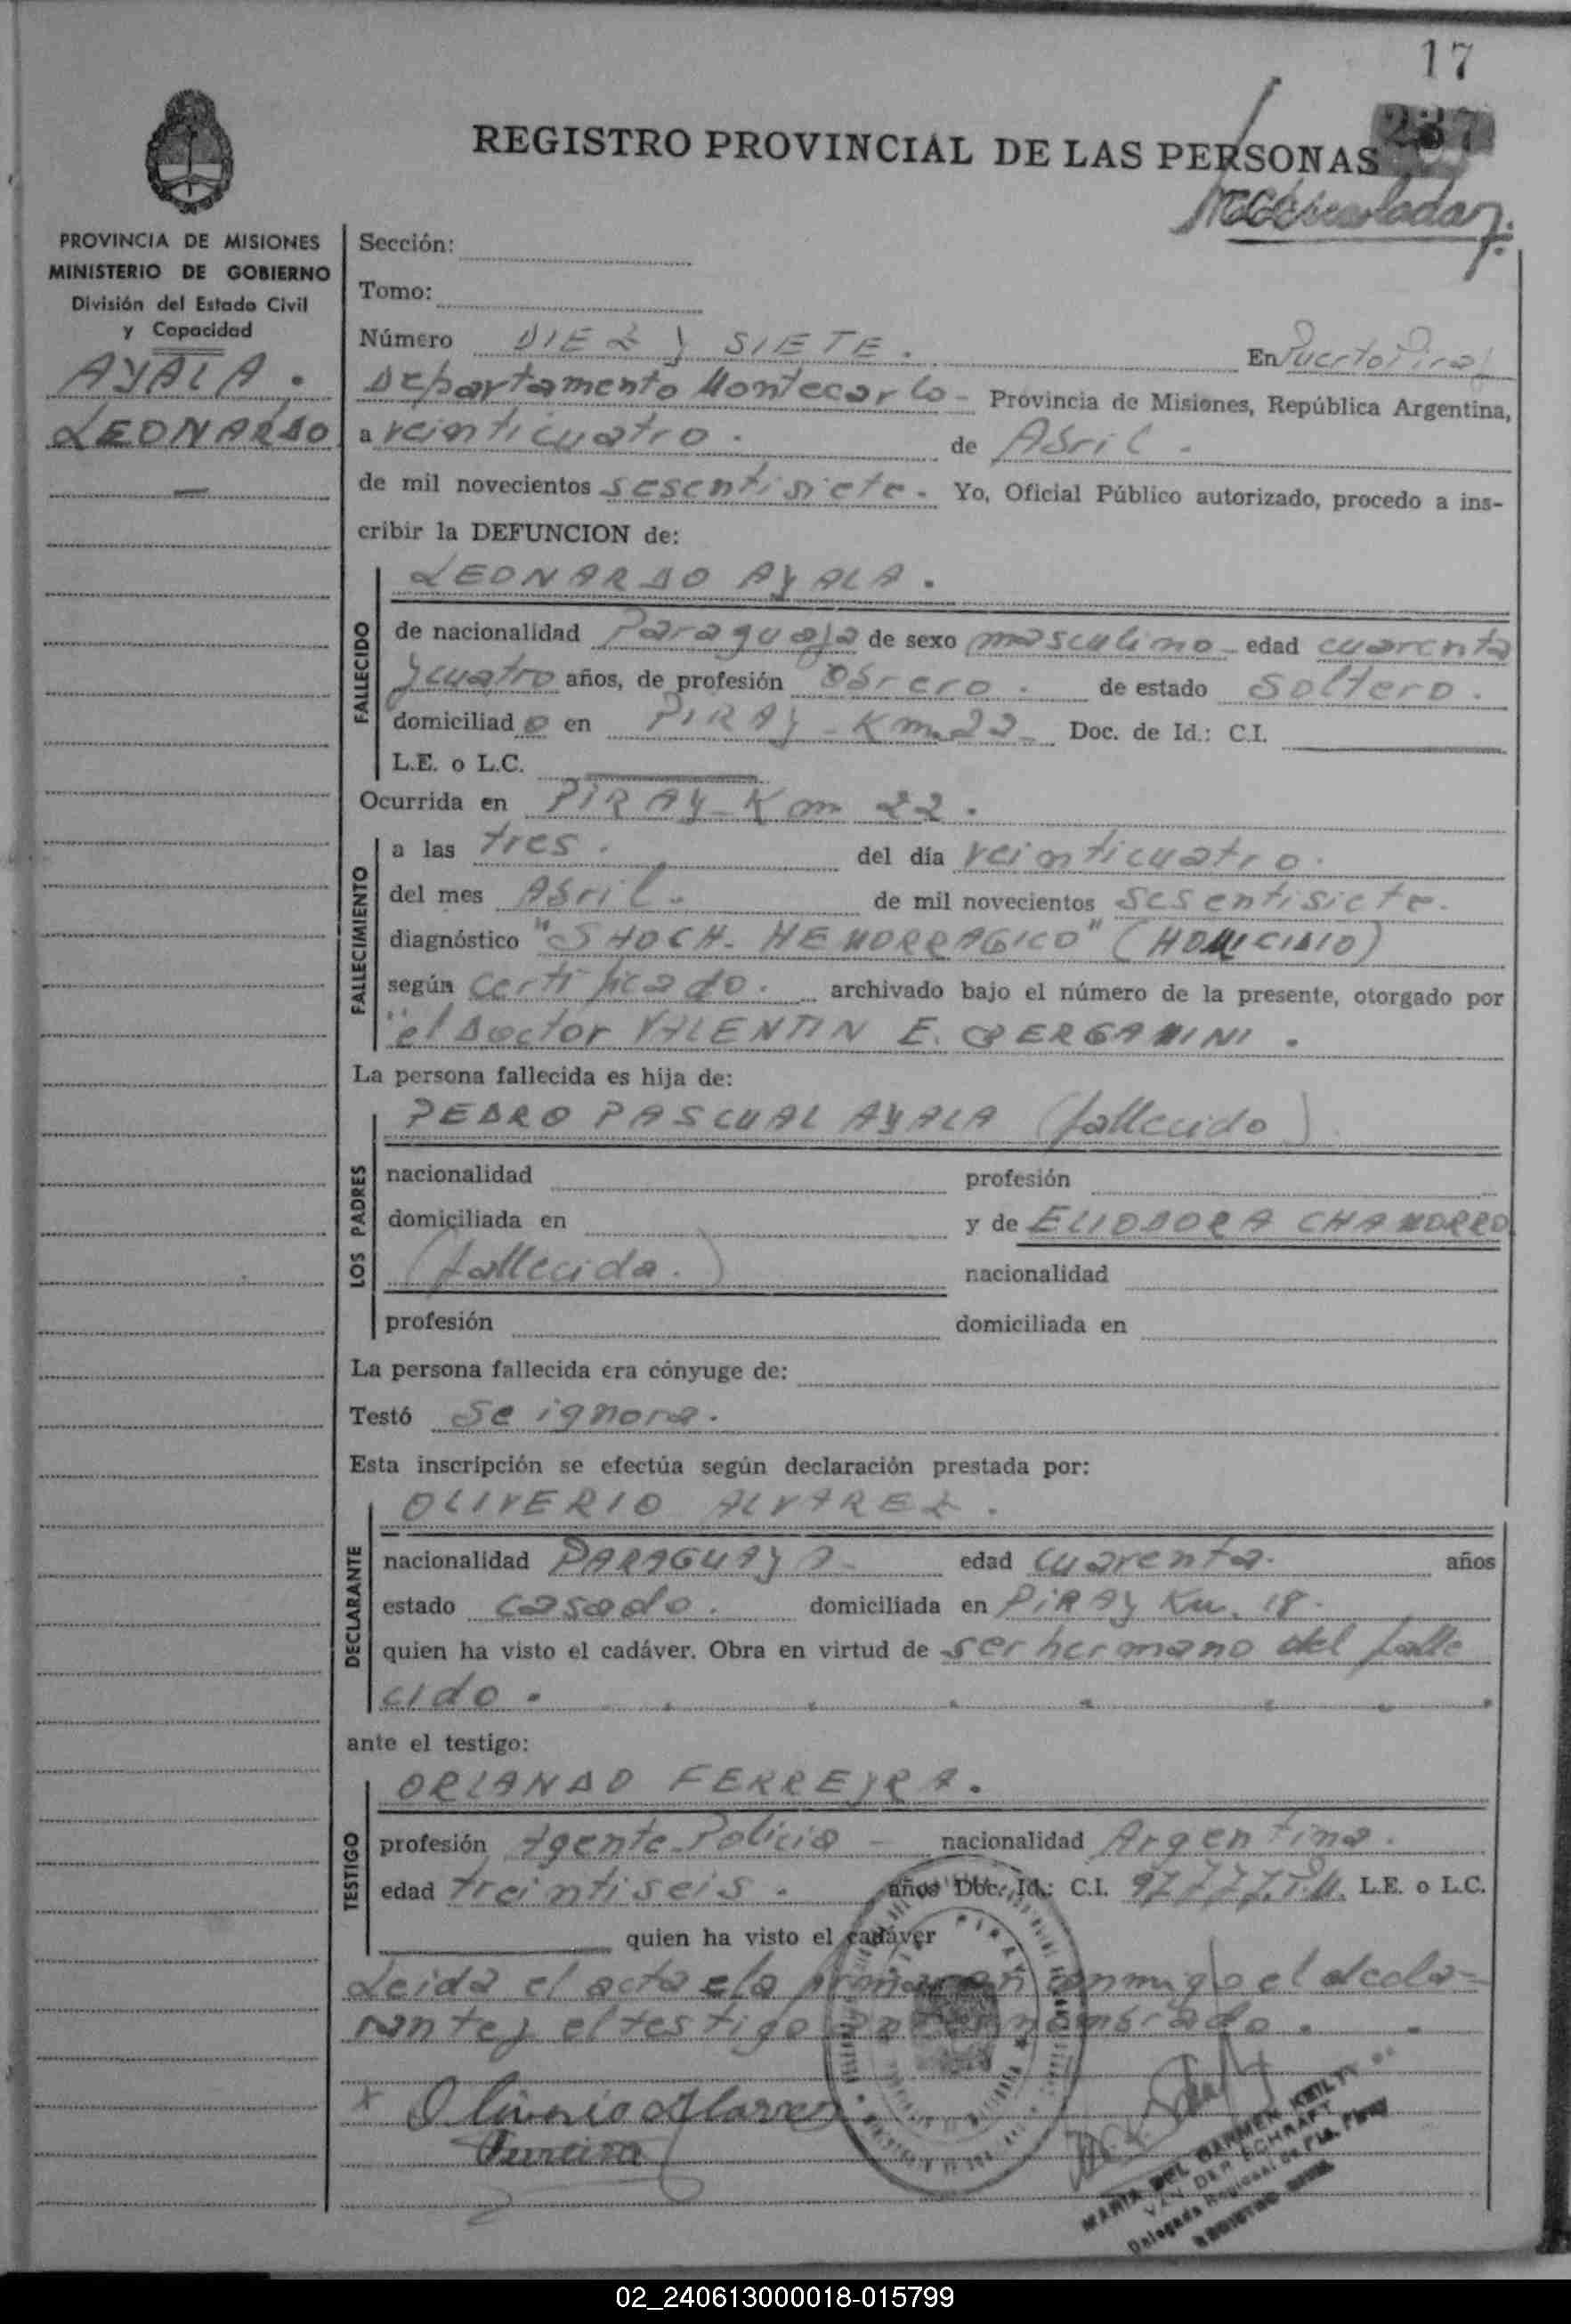 17
237
REGISTRO PROVINCIAL DE LAS PERSONAS
PROVINCIA DE MISIONES
MINISTERIO DE GOBIERNO
División del Estado Civil
y Capacidad
AYALA.
LEONARDO
Sección:
Tomo:
Número DIEZ y SIETE. En Puerto Piray
Departamento Montecarlo - Provincia de Misiones, República Argentina,
a veinticuatro. de Abril.
de mil novecientos sesentisiete. Yo, Oficial Público autorizado, procedo a ins-
cribir la DEFUNCION de:
FALLECIDO
LEONARDO AYALA.
de nacionalidad Paraguaya de sexo masculino - edad cuarenta
y cuatro años, de profesión Obrero. de estado Soltero.
domiciliad o en PIRAY - Km 22 - Doc. de Id.: C.I.
L.E. o L.C.
Ocurrida en PIRAY - Km 22.
FALLECIMIENTO
a las tres. del día veinticuatro.
del mes Abril. de mil novecientos sesentisiete.
diagnóstico "SHOCH - HEMORRAGICO" (HOMICIDIO)
según certificado. archivado bajo el número de la presente, otorgado por
"el Doctor VALENTIN E. BERGAMINI.
La persona fallecida es hija de:
LOS PADRES
PEDRO PASCUAL AYALA (fallecido)
nacionalidad profesión
domiciliada en y de ELIODORA CHAMORRO
(fallecida.) nacionalidad
profesión domiciliada en
La persona fallecida era cónyuge de:
Testó Se ignora.
Esta inscripción se efectúa según declaración prestada por:
DECLARANTE
OLIVERIO ALVAREZ.
nacionalidad PARAGUAYA - edad cuarenta. años
estado casado. domiciliada en PIRAY Km. 18.
quien ha visto el cadáver. Obra en virtud de ser hermano del falle
cido.
ante el testigo:
TESTIGO
ORLANDO FERREYRA.
profesión Agente Policia - nacionalidad Argentina.
edad treintiseis. años Doc. Id.: C.I. L.E. o L.C.
quien ha visto el cadáver
Leida el acta e la firmaron conmigo el decla-
rante y el testigo antes nombrado.
x Oliverio Alvarez
MARIA DEL CARMEN KEILTY
VAN DER SCHRAFT
Delegada Regional de Pto. Piray
REGISTRO CIVIL
02_240613000018-015799